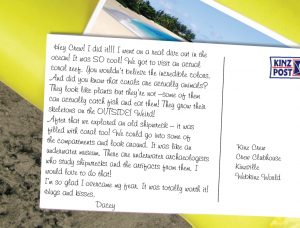 Hey Crew! I did it!!! I went on a real dive out in the
ocean! It was SO cool! We got to visit an actual
coral reef. You wouldn't believe the incredible colors.
And did you know that corals are actually animals?
They look like plants but they're not – some of them
can actually catch fish and eat them! They grow their
skeletons on the OUTSIDE! Weird!
After that we explored an old shipwreck – it was
filled with coral too! We could go into some of
the compartments and look around. It was like an
underwater museum. There are underwater archaeologists
who study shipwrecks and the artifacts from them. I
would love to do that!
I'm so glad I overcame my fear. It was totally worth it!
Hugs and kisses,
Dacey
KINZ
POST
Kinz Crew
Crew Clubhouse
Kinzville
Webkinz World